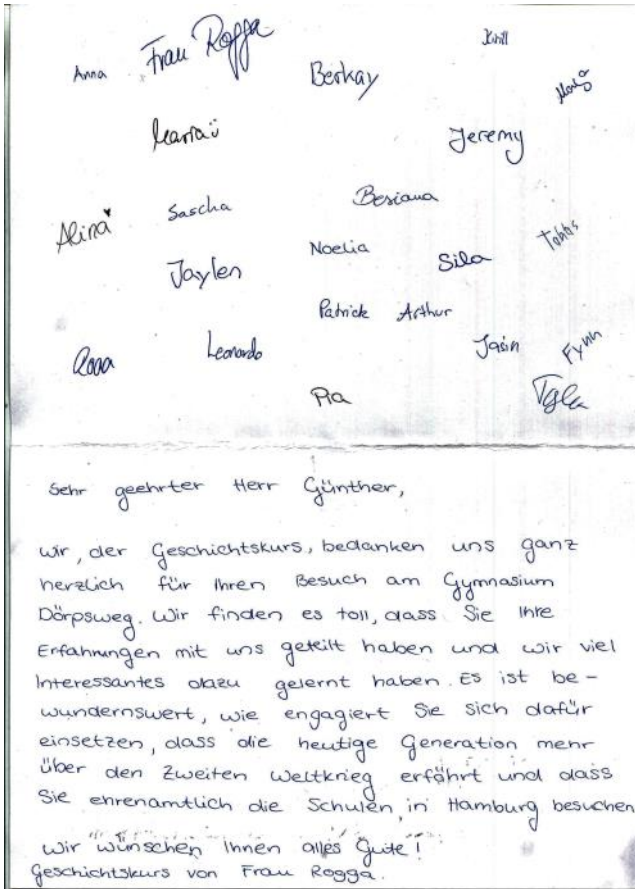 Anna Frau Rogga Berkay Kirill
Maria Jeremy
Alina Sascha Besiana Tobias
Jaylen Noelia Sila
Patrick Arthur
Leonardo Jasin Fynn
Pia
Sehr geehrter Herr Günther,
wir, der Geschichtskurs, bedanken uns ganz
herzlich für Ihren Besuch am Gymnasium
Dörpsweg. Wir finden es toll, dass Sie Ihre
Erfahrungen mit uns geteilt haben und wir viel
Interessantes dazu gelernt haben. Es ist be-
wundernswert, wie engagiert Sie sich dafür
einsetzen, dass die heutige Generation mehr
über den Zweiten Weltkrieg erfährt und dass
Sie ehrenamtlich die Schulen in Hamburg besuchen
Wir wünschen Ihnen alles Gute!
Geschichtskurs von Frau Rogga.